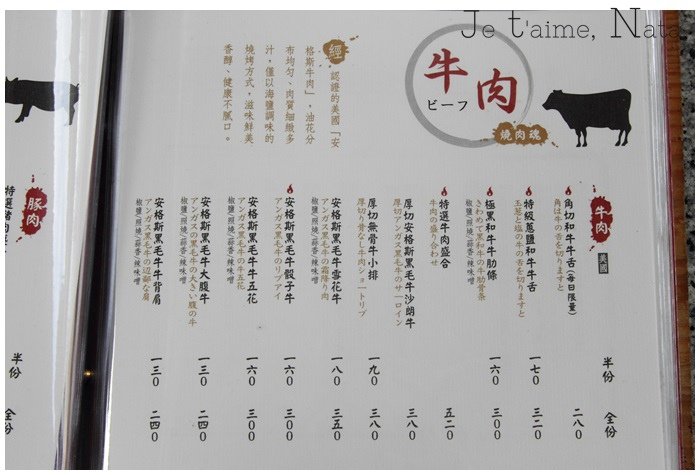 Je t'aime, Nata
牛肉
ビーフ
燒肉魂
經認證的美國「安
格斯牛肉」，油花分
布均勻、肉質細緻多
汁，僅以海鹽調味的
燒烤方式，滋味鮮美
香醇、健康不膩口。
牛肉
美國
半份 全份
角切和牛牛舌(每日限量)
角は牛の舌を切りますと
二八0
特級蔥鹽和牛牛舌
玉葱と塩の牛の舌を切りますと
一七0 三二0
極黑和牛牛肋條
きわめて黒和牛の牛肋骨条
椒鹽/照燒/蒜香/辣味噌
一六0 三00
特選牛肉盛合
牛肉の盛り合わせ
五二0
厚切安格斯黑毛牛沙朗牛
厚切アンガス黒毛牛のサーロイン
三八0
厚切無骨牛小排
厚切り骨なし牛肉ショートリブ
一九0 三八0
安格斯黑毛牛雪花牛
アンガス黒毛牛の霜降り肉
椒鹽/照燒/蒜香/辣味噌
一八0 三五0
安格斯黑毛牛骰子牛
アンガス黒毛牛のリブアイ
一六0 三00
安格斯黑毛牛牛五花
アンガス黒毛牛の牛五花
椒鹽/照燒/蒜香/辣味噌
一六0 三00
安格斯黑毛牛大腹牛
アンガスの黒毛牛の大きい腹の牛
椒鹽/照燒/蒜香/辣味噌
一三0 二四0
安格斯黑毛牛牛背肩
アンガス黒毛牛の辺鄙な肩
椒鹽/照燒/蒜香/辣味噌
一三0 二四0
豚肉
特選豬肉
半份 全份